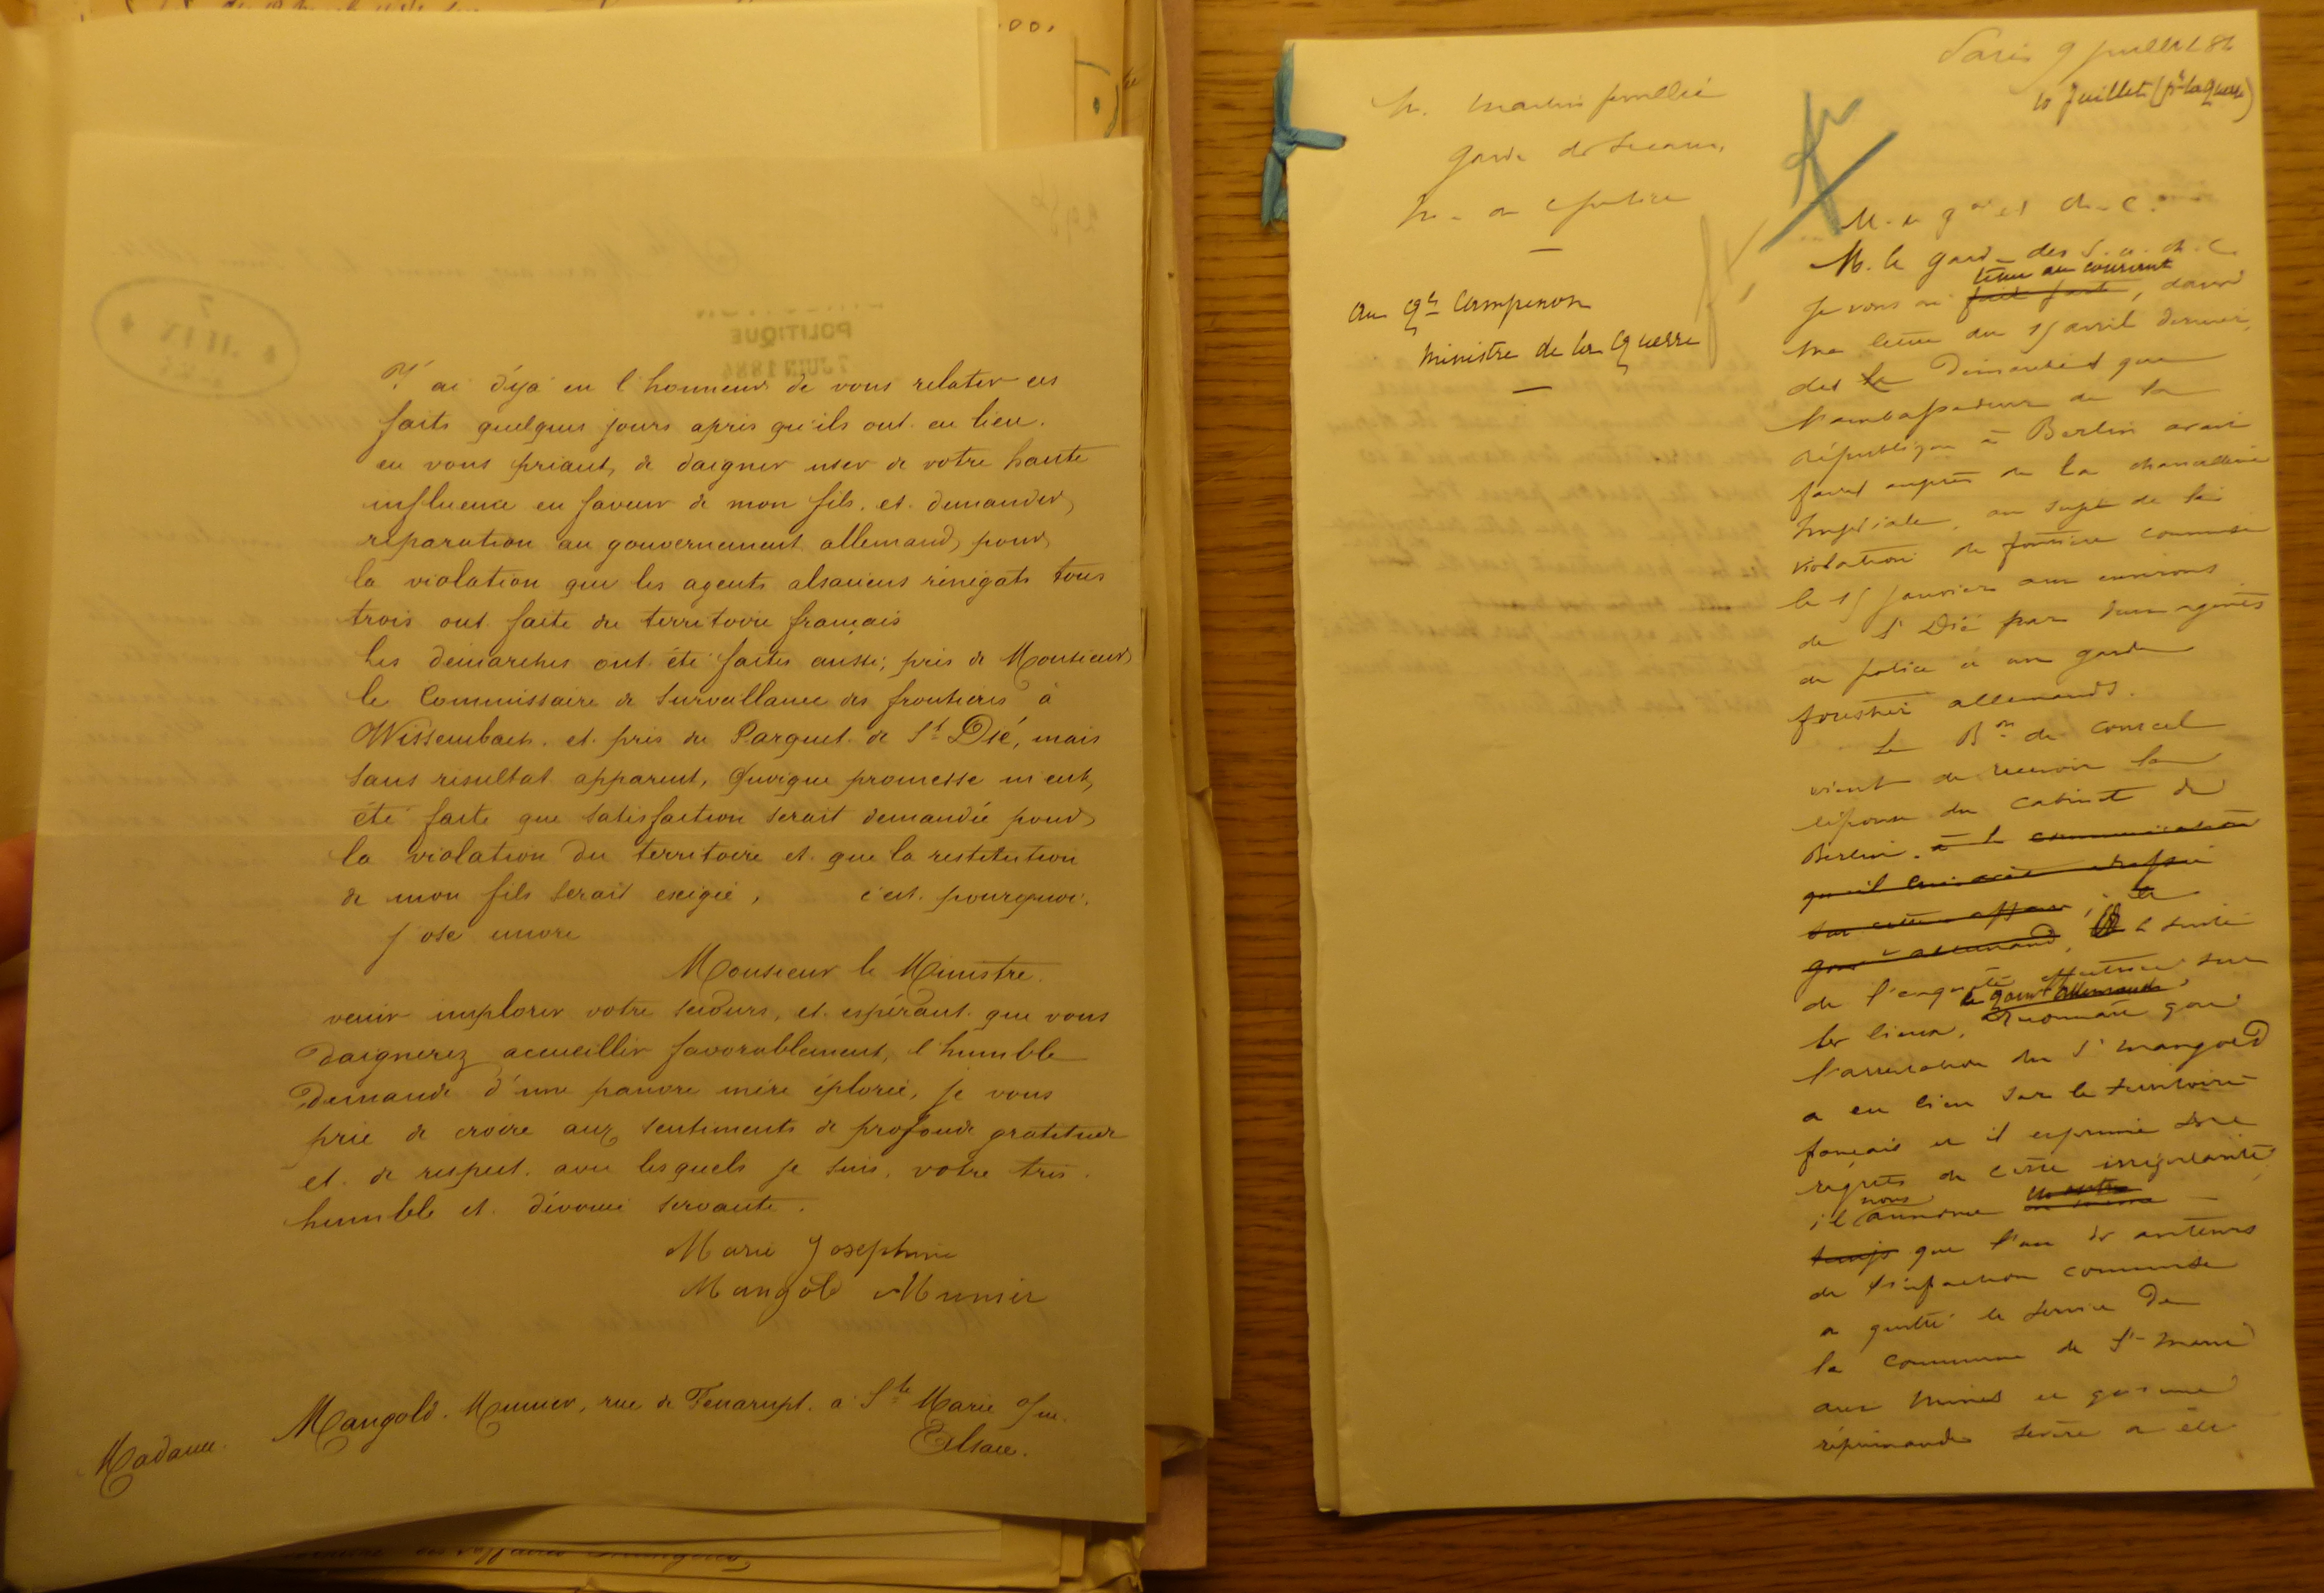 J'ai déjà eu l'honneur de vous relater ces
faits quelques jours après qu'ils ont eu lieu.
en vous priant, de daigner user de votre haute
influence en faveur de mon fils. et demander
réparation au gouvernement allemand, pour
la violation que les agents alsaciens rénégats tous
trois ont faite du territoire français
Les démarches ont été faites aussi; près de Monsieur
le Commissaire de Surveillance des frontières à
Wissembach. et près du Parquet de St Dié, mais
sans résultat apparent, Quoique promesse m'eut
été faite que satisfaction serait demandée pour
la violation du territoire et que la restitution
de mon fils serait exigée, c'est pourquoi.
j'ose encore
Monsieur le Ministre.
venir implorer votre secours, et espérant que vous
daignerez accueillir favorablement, l'humble
demande d'une pauvre mère éplorée, je vous
prie de croire aux sentiments de profonde gratitude
et de respect avec lesquels je suis, votre très
humble et dévouée servante.
Marie Joséphine
Mangold Munier
Madame Mangold-Munier, rue de Fenarupt. à Ste Marie a/m.
Elsass.
POLITIQUE
7 JUIN 1884
Paris 9 juillet 84
10 Juillet (pr la guerre)
M. Martin feuillée
garde des sceaux,
M. de la justice
au Gal Campenon
ministre de la Guerre
M. le gal et ch. C.
M. le garde des S. et ch. C.
Je vous ai tenu au courant, dans
ma lettre du 15 avril dernier,
des démarches que
l'ambassadeur de la
république à Berlin avait
faites auprès de la chancellerie
Impériale, au sujet de la
violation de frontière commise
le 15 janvier aux environs
de St Dié par deux agents
de police et un garde
forestier allemands.
Le Bon de Courcel
vient de recevoir la
réponse du cabinet de
Berlin. à la communication
qu'il lui avait adressée
sur cette affaire, ; à
gouvt allemand, la suite
de l'enquête effectuée sur
les lieux, le gouvt allemand reconnaît que
l'arrestation du Sr Mangold
a eu lieu sur le territoire
français et il exprime ses
regrets de cette irrégularité
il nous annonce
que l'un des auteurs
de l'infraction commise
a quitté le service de
la commune de Ste Marie
aux Mines et qu'une
réprimande sévère a été